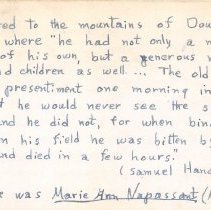 red to the mountains of Dou
where "he had not only a n
of his own, but a generous n
nd children as well... The old
presentiment one morning in
t he would never see the s
nd he did not, for when bind
n his field he was bitten by
nd died in a few hours."
(Samuel Hand
e was Marie Ann Napassant (